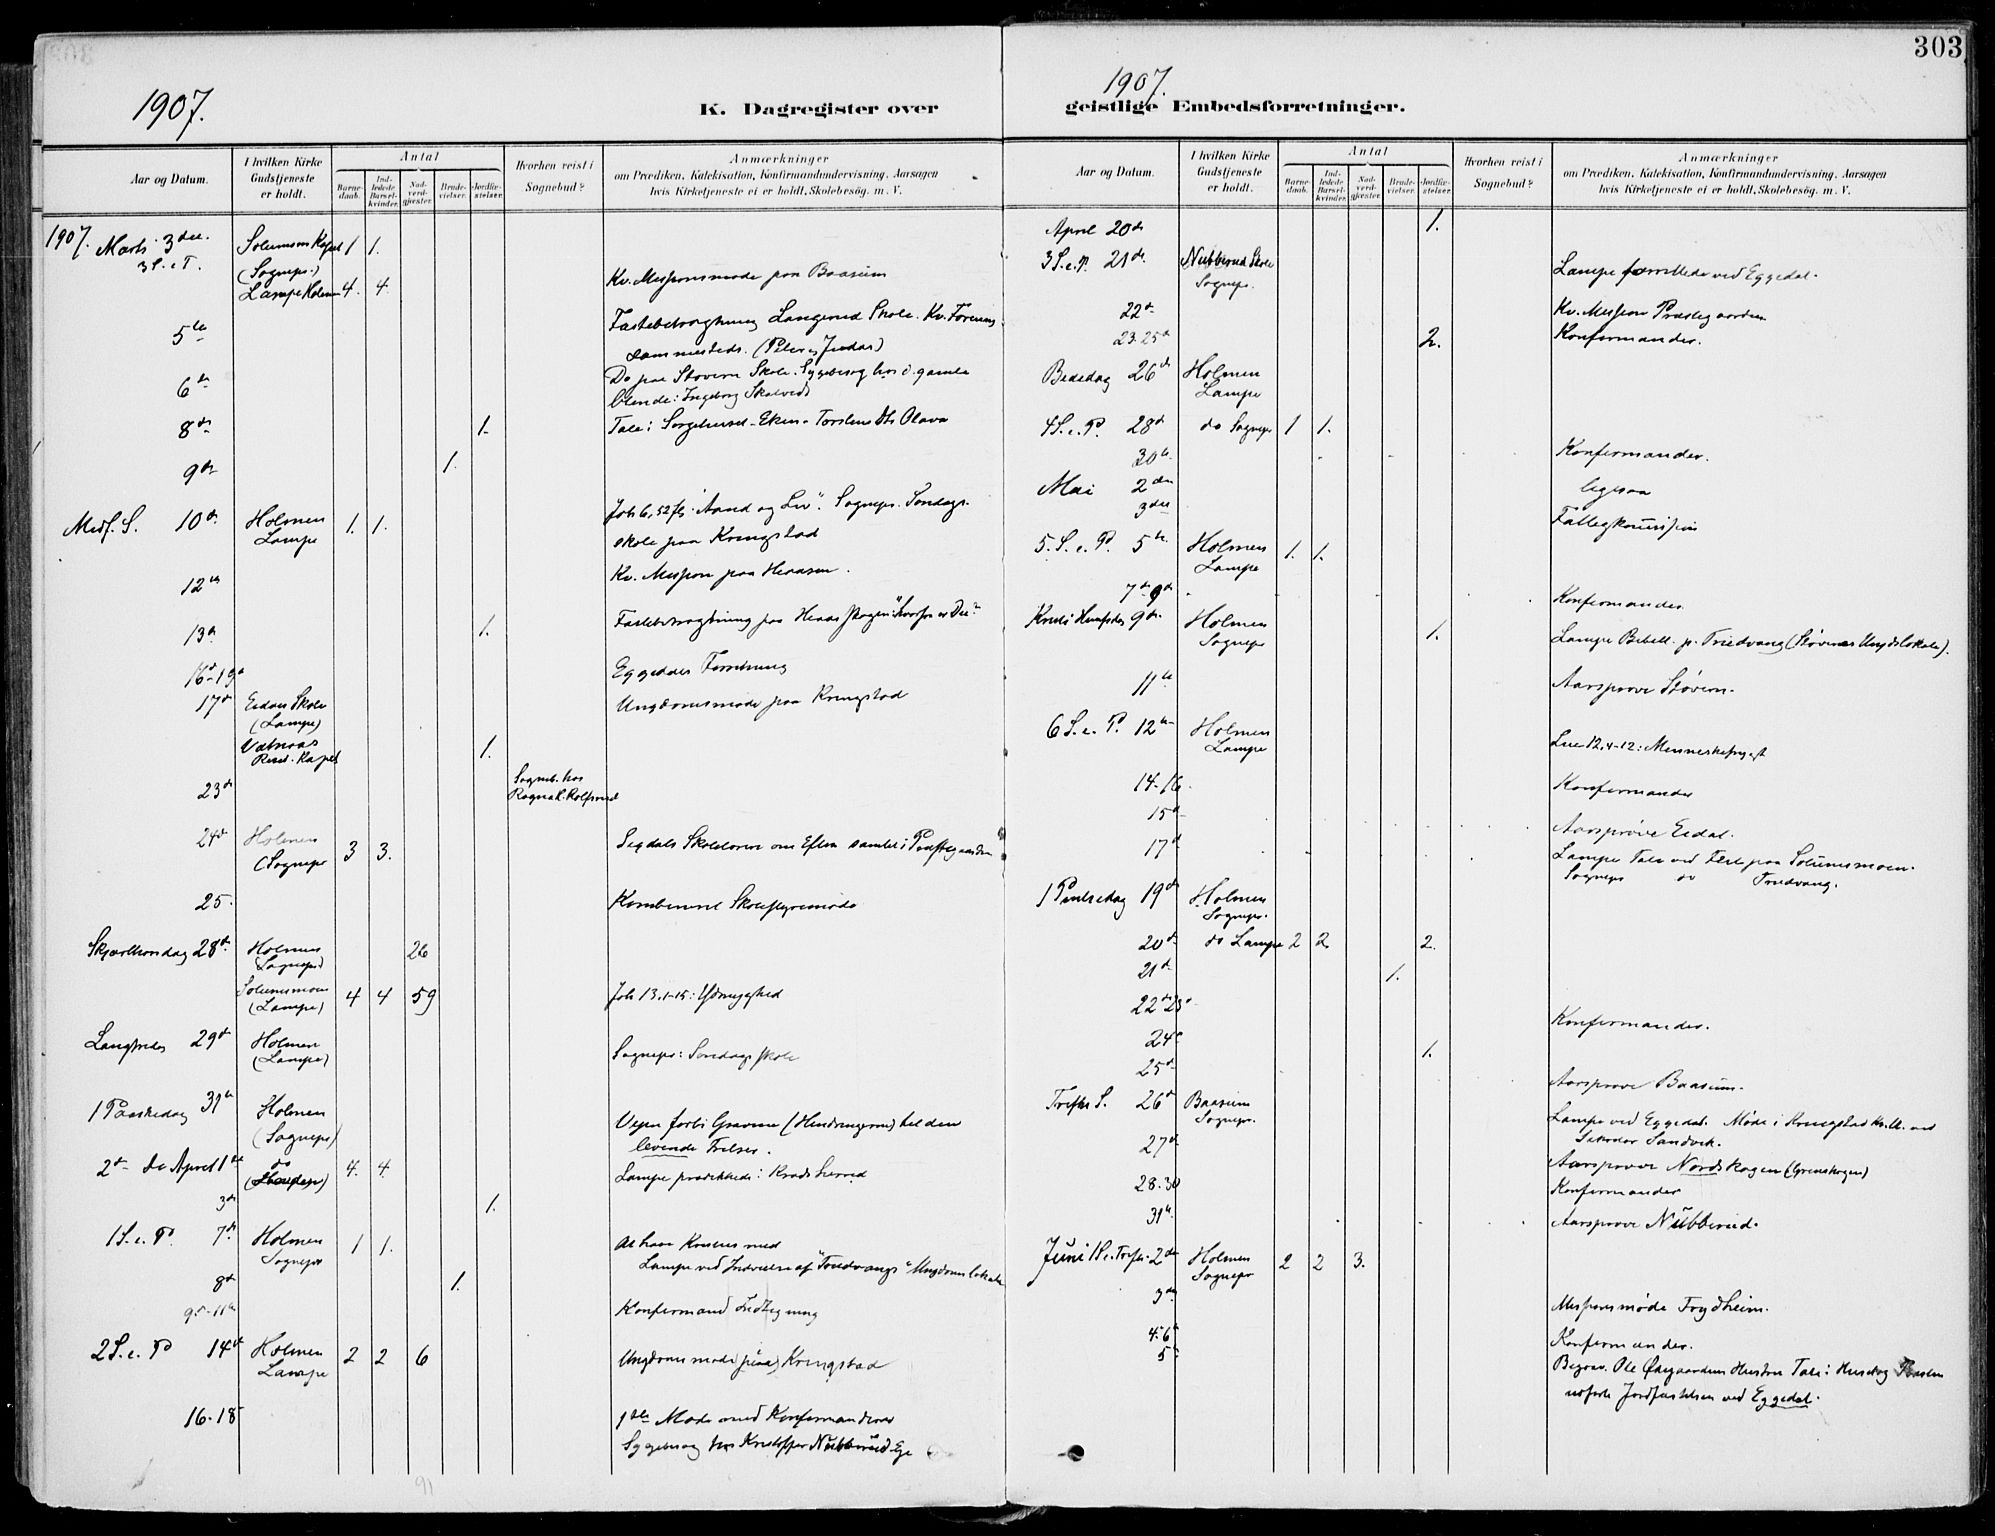 303
1907.
1907.
K. Dagregister over
geistlige Embedsforretninger.
Aar og Datum.
I hvilken Kirke
Gudstjeneste
er holdt.
Antal
Barne-
daab.
Ind-
ledede
Barsel-
kvinder.
Nad-
verd-
gjæster.
Brude-
vielser.
Jordfæ-
stelser.
Hvorhen reist i
Sognebud?
Anmærkninger
om Prædiken, Katekisation, Konfirmandundervisning, Aarsagen
hvis Kirketjeneste ei er holdt, Skolebesøg. m. V.
1907. Marts 3die Solumsm Kapel 1 1.
3 S. e T. (Sognepr.)
Lampe Holmen 4. 4. Kv. Missionsmøde paa Baasum
5te Fastebetragtning Langerud Skole. Kv. Forening
sammesteds. (Peter og Judas)
6te Do paa Støvern Skole. Sygebesøg hos d. gamle
blinde: Ingeborg
8de 1. Tale i Sorgehuset Olava
9de 1.
Midf. S. 10de Holmen 1. 1. Joh 6, 52 flg "Aand og Liv". Sognepr. Søndags-
Lampe skole paa Kringstad
12te Kv. Mission paa Heaasen.
13de 1. Fastebetragtning paa
16de-19de Eggedals Forretning
17de Eidals Skole Ungdomsmøde paa Kringstad
(Lampe)
Vatnaas
Rest. Kapel 1.
23de Sogneb. hos
24de Holmen 3 3. Sigdals Skolelærere om Eften samlet i Præstegaarden
(Sognepr
25. Kombineret Skolestyremøde
Skjærthorsdag 28de Holmen 26
(Sognepr)
Solumsmoen 4 4 59 Joh 13, 1-15: Ydmyghed
(Lampe)
Langfredag 29de Holmen Sognepr: Søndagsskole
(Lampe)
1 Paaskedag 31te Holmen Vejen forbi Gravene (Hindringerne) til den
(Sognepr) levende Frelser.
2den do April 1ste do 4. 4. Lampe prædikede i Kradsherred
3de 1.
1 S. e. P. 7de Holmen 1 1. At have Kristus med
Sognepr Lampe ved Indvielse af "Fredvangs" Ungdomslokale
8de 1.
9de-11te Konfirmand Indtegning
2 S. e. P 14de Holmen 2 2 6 Ungdomsmøde paa Kringstad
Lampe
16-18 1ste Møde med Konfirmanderne
Sygebesøg hos Kristoffer Nubberud Eje
Aar og Datum.
I hvilken Kirke
Gudstjeneste
er holdt.
Antal
Barne-
daab.
Ind-
ledede
Barsel-
kvinder.
Nad-
verd-
gjæster.
Brude-
vielser.
Jordfæ-
stelser.
Hvorhen reist i
Sognebud?
Anmærkninger
om Prædiken, Katekisation, Konfirmandundervisning, Aarsagen
hvis Kirketjeneste ei er holdt, Skolebesøg. m. V.
April 20de 1.
3 S. e. P. 21de Nubberud Skole Lampe forrettede ved Eggedal.
Sognepr.
22de Kv. Mission Præstegaarden
23-25de 2. Konfirmander.
Bededag 26de Holmen
Lampe
4 S. e. P. 28de do Sognepr 1 1.
30te Konfirmander.
Mai 2den ligesaa
3die
5. S. e. P. 5te Holmen 1. 1.
Lampe
7de-9de Konfirmander
Kristi Himfdag 9de Holmen 1. Lampe Bibell. p. Fredvang (Støvernes Ungds lokale).
Sognepr
11te Aarsprøve Støvern.
6 S. e. P. 12te Holmen Luc 12, 4-12: Menneskefrygt
Lampe
14-16. Konfirmander
15de Aarsprøve Eidal.
17de Lampe Tale ved Fest paa Solumsmoen.
Sognepr do Fredvang.
1 Pintsedag 19de Holmen
Sognepr.
20de do Lampe 2 2 2.
21de 1.
22de 23de Konfirmander.
24de 1.
25de Aarsprøve Baasum.
Trefk S. 26de Baasum Lampe ved Eggedal. Møde i Kringstad
Sognepr. Sandvik.
27de Aarsprøve Nordskogen (Grenskogen)
28-30 Konfirmander
31te Aarsprøve Nubberud.
Juni 1 S. e. Trefk. 2den Holmen 2 2 3.
Sognepr
3die Missionsmøde Frydheim.
4-6te Konfirmander.
5te Begrav. Ole Øxgaardens Hustru Tale i Huset og
udførte Jordfæstelsen ved Eggedal.